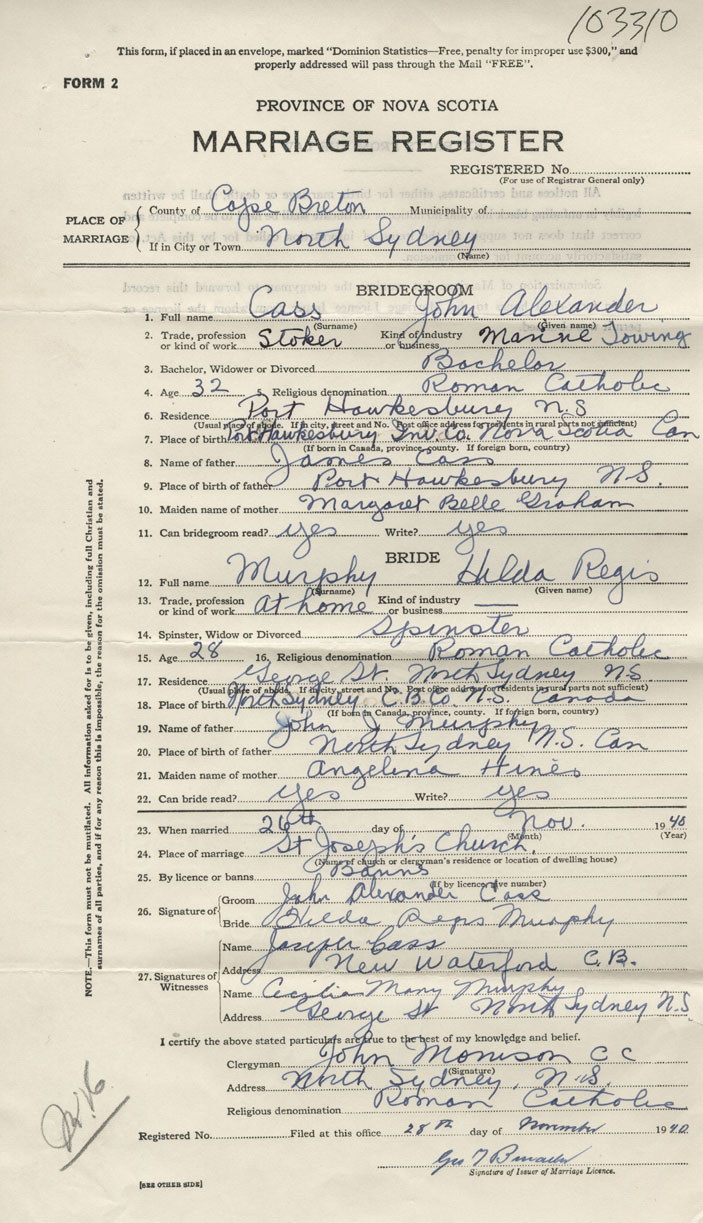 103310
This form, if placed in an envelope, marked "Dominion Statistics—Free, penalty for improper use $300," and
properly addressed will pass through the Mail "FREE".
FORM 2
PROVINCE OF NOVA SCOTIA
MARRIAGE REGISTER
REGISTERED No.
(For use of Registrar General only)
PLACE OF MARRIAGE
County of Cape Breton Municipality of
If in City or Town North Sydney
(Name)
BRIDEGROOM
1. Full name Cass John Alexander
(Surname) (Given name)
2. Trade, profession or kind of work Stoker Kind of industry or business Marine Towing
3. Bachelor, Widower or Divorced Bachelor
4. Age 32 5. Religious denomination Roman Catholic
6. Residence Port Hawkesbury N.S
(Usual place of abode. If in city, street and No. Post office address for residents in rural parts not sufficient)
7. Place of birth Port Hawkesbury Inv. Co. Nova Scotia Can
(If born in Canada, province, county. If foreign born, country)
8. Name of father James Cass
9. Place of birth of father Port Hawkesbury N.S.
10. Maiden name of mother Margaret Belle Graham
11. Can bridegroom read? yes Write? yes
BRIDE
12. Full name Murphy Hilda Regis
(Surname) (Given name)
13. Trade, profession or kind of work At home Kind of industry or business —
14. Spinster, Widow or Divorced Spinster
15. Age 28 16. Religious denomination Roman Catholic
17. Residence George St. North Sydney N.S.
(Usual place of abode. If in city, street and No. Post office address for residents in rural parts not sufficient)
18. Place of birth North Sydney C.B. Co. N.S. Canada
(If born in Canada, province, county. If foreign born, country)
19. Name of father John J Murphy
20. Place of birth of father North Sydney N.S. Can
21. Maiden name of mother Angelina Hines
22. Can bride read? yes Write? yes
23. When married 26th day of Nov. 1940
(Month) (Year)
24. Place of marriage St Joseph's Church,
(Name of church or clergyman's residence or location of dwelling house)
25. By licence or banns Banns
(If by licence, give number)
26. Signature of
Groom John Alexander Cass
Bride Hilda Regis Murphy
27. Signatures of Witnesses
Name Joseph Cass
Address New Waterford C.B.
Name Cecilia Mary Murphy
Address George St North Sydney N.S.
I certify the above stated particulars are true to the best of my knowledge and belief.
Clergyman John Morrison C C
(Signature)
Address North Sydney, N.S.
Religious denomination Roman Catholic
Registered No. Filed at this office 28th day of November 1940
Geo T
Signature of Issuer of Marriage Licence.
[SEE OTHER SIDE]
NOTE.—This form must not be mutilated. All information asked for is to be given, including full Christian and
surnames of all parties, and if for any reason this is impossible, the reason for the omission must be stated.